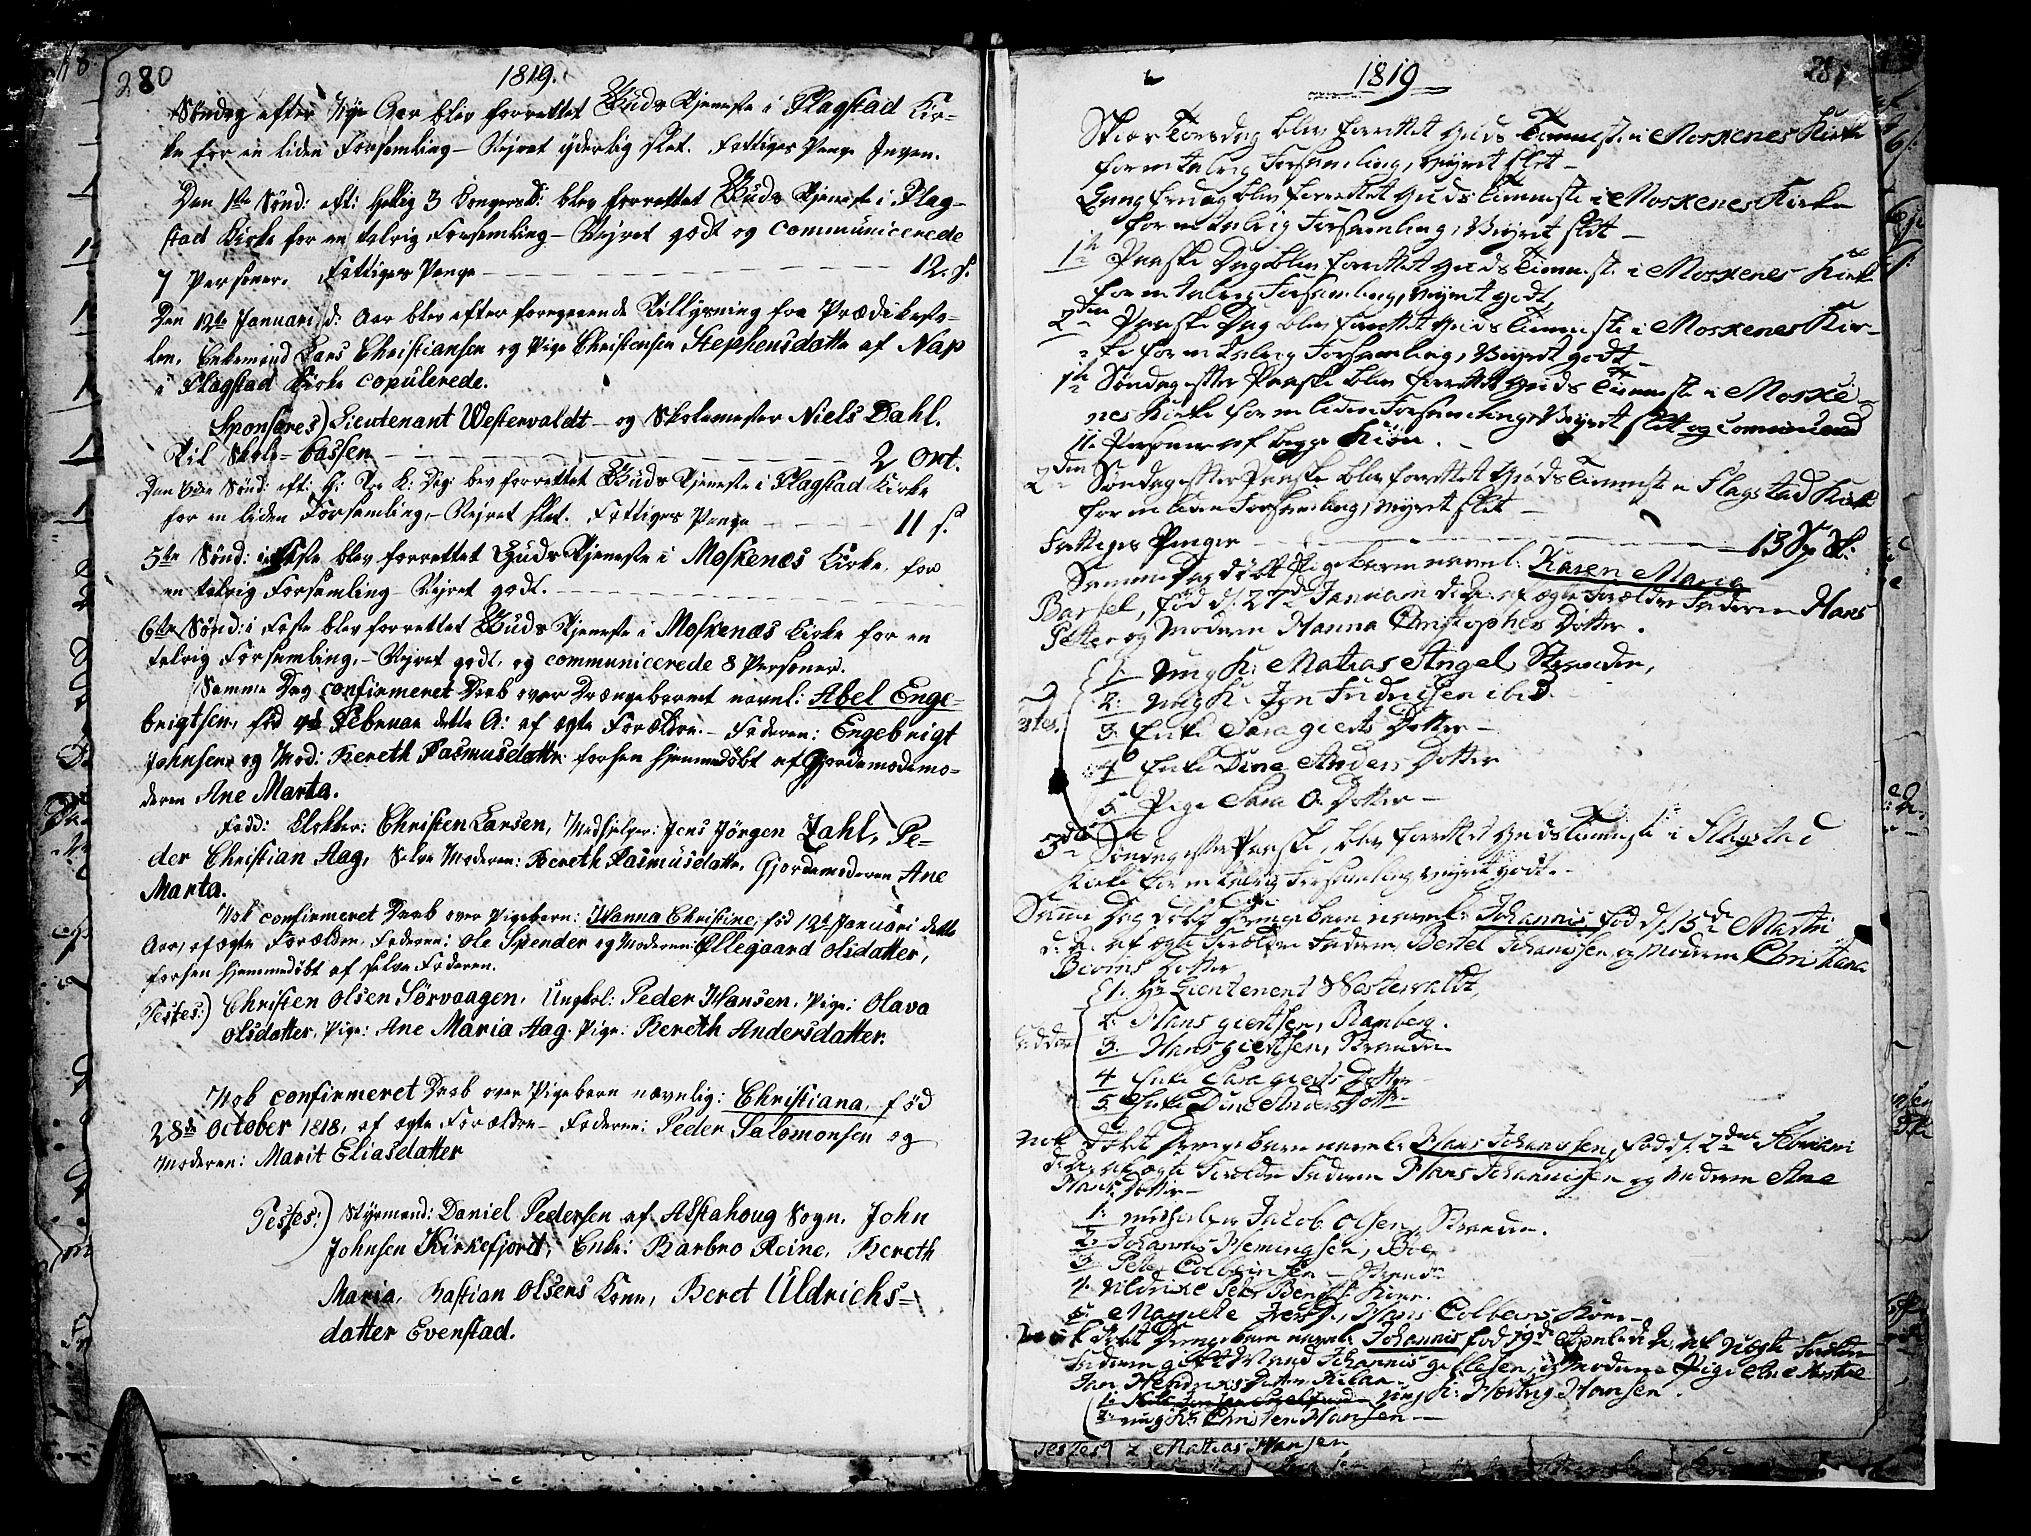 280
1819.
Söndag efter Nye Aar blev forrettet Guds Tjeneste i Flagstad Kir-
ke for en liden Forsamling – Vejret yderlig slet. Fattiges Penge Ingen.
Den 1ste Sönd: eft: Hellig 3 Kongersd: blev forrettet Guds Tjeneste i Flag-
stad Kirke for en talrig Forsamling – Vejret godt og communicerede
7 Personer. Fattiges Penge 12. s.
Den 12te Januari d: Aar blev efter foregaaende Tillysning fra Prædikesto-
len, Enkemand Lars Christiansen og Pige Christensen Stephensdatter af Nap
i Flagstad Kirke copulerede.
Sponsores) Lieutenant Westervaldt og Skolemester Niels Dahl.
Til Skole-Cassen 2 Ort.
Den 6te Sönd: eft: H: Tre K: Dag blev forrettet Guds Tjeneste i Flagstad Kirke
for en liden Forsamling, – Vejret slet. Fattiges Penge 11 s.
5te Sönd: i Faste blev forrettet Guds Tjeneste i Moskenæs Kirke, for
en talrig Forsamling – Vejret godt.
6te Sönd: i Faste blev forrettet Guds Tjeneste i Moskenæs Kirke for en
talrig Forsamling, – Vejret godt, og communicerede 8 Personer.
Samme Dag confirmeret Daab over Drængebarnet navnl: Abel Enge-
brigtsen, föd Februar dette A: af ægte Forældre. – Faderen: Engebrigt
Johnsen og Mod: Bereth Rasmusdatter forhen hjemmedöbt af Gjordemodemo-
deren Ane Marta.
Fadd: Klokker: Christen Larsen, Medhjelper: Jens Jörgen Zahl, Pe-
der Christian Aag, Selve Moderen: Bereth Rasmusdatter, Gjordemoderen Ane
Marta.
Nok confirmeret Daab over Pigebarn: Hanna Christine, föd 12te Januari dette
Aar, af ægte Forældre. Faderen: Ole Spender og Moderen: Ellegaard Olsdatter,
forhen hjemmedöbt af selve Faderen.
Testes:) Christen Olsen Sörvaagen, Ungkal: Peder Hansen, Pige: Olava
Olsdatter, Pige: Ane Maria Aag. Pige: Bereth Andersdatter.
Nok confirmeret Daab over Pigebarn navnlig: Christiana, föd
28de October 1818, af ægte Forældre – Faderen: Peder Salomonsen og
Moderen: Marit Eliasdatter
Testes:) Styrmand: Daniel Pedersen af Alstahoug Sogn, John
Johnsen Kirkefjord, Enke: Barbro Reine, Bereth
Maria, Bastian Olsens Kone, Beret Uldrichs-
datter Evenstad.
1819
281
Skiær Torsdag blev forrettet Guds Tienneste i Moskenes Kirke
for en talrig Forsamling, Vejret slet –
Lang fredag blev forrettet Guds Tienneste i Moskenes Kirke
for en talrig Forsamling, Vejret slet –
1te Paaske Dag blev forrettet Guds Tienneste i Moskenes Kirke
for en talrig Forsamling, Vejret godt,
2den Paaske Dag blev forrettet Guds Tienneste i Moskenes Kir-
ke for en talrig Forsamling, Vejret godt –
1te Söndag efter Paaske blev forrettet Guds Tienneste i Moske-
nes Kirke for en liden Forsamling, Vejret slet og
11 Personer af begge Kiön. –
2den Söndag efter Paaske blev forrettet Guds Tienneste i Flagstad Kirke
for en liden Forsamling, Vejret slet –
Fattiges Penger 13
Samme Dag döbt Pigebarn navnl: Karen Maria
Barsel, föd d. 27de Januari d. A. af ægte Forældre Faderen Hans
Petter og Moderen Hanna Christophers Dotter.
1. Ung K: Matias Angel, Stranden,
2. Ung K. Jon Fredrichsen ibid.
3. Enke Sara gierts Dotter –
4. Enke Dine Anders Dotter
5. Pige Sara O. Dotter –
3die Söndag efter Paaske, blev forrettet Guds Tienneste i Flagstad
Kirke for en talrig Forsamling Vejret godt. –
Samme Dag döbt Drenge barn navnl: Johannis föd d. 15de Martii
d. A. af ægte Forældre Faderen Bertel Johanssen og Moderen Christiana
Dotter
1. Hr Lieutenent Westervaldt,
2. Hans giertsen, Ramberg.
3. Hans giertsen, Stranden
4 Enke Sara gierts Dotter
5. Enke Dine Anders Dotter
Nok döbt Drenge barn navnl: Hans Johanssen, föd d. 2den Februari
d. A. af ægte Forældre Faderen Hans Johannissen og Moderen Ane
Hans Dotter –
1. Medhielper Jacob Olsen, Stranden.
2. Johannes Hemingsen, Böe
3. Peter Colbeinsen – Stranden
4. Uldrike Peter Bendt Kone.
5. Mareke Jversd. Hans Colbens Kone –
Nok döbt Drenge barn navnl: Johannis föd 19de April d. A. af uægte Forældre
Faderen gift Mand Johannis gellesen, og Moderen Pige Ane
Jan Hendriks Datter
1. Ung K: Hartvig Hansen.
2. Ung K: Christen Hansen –
Testes 2 Matias Hansen